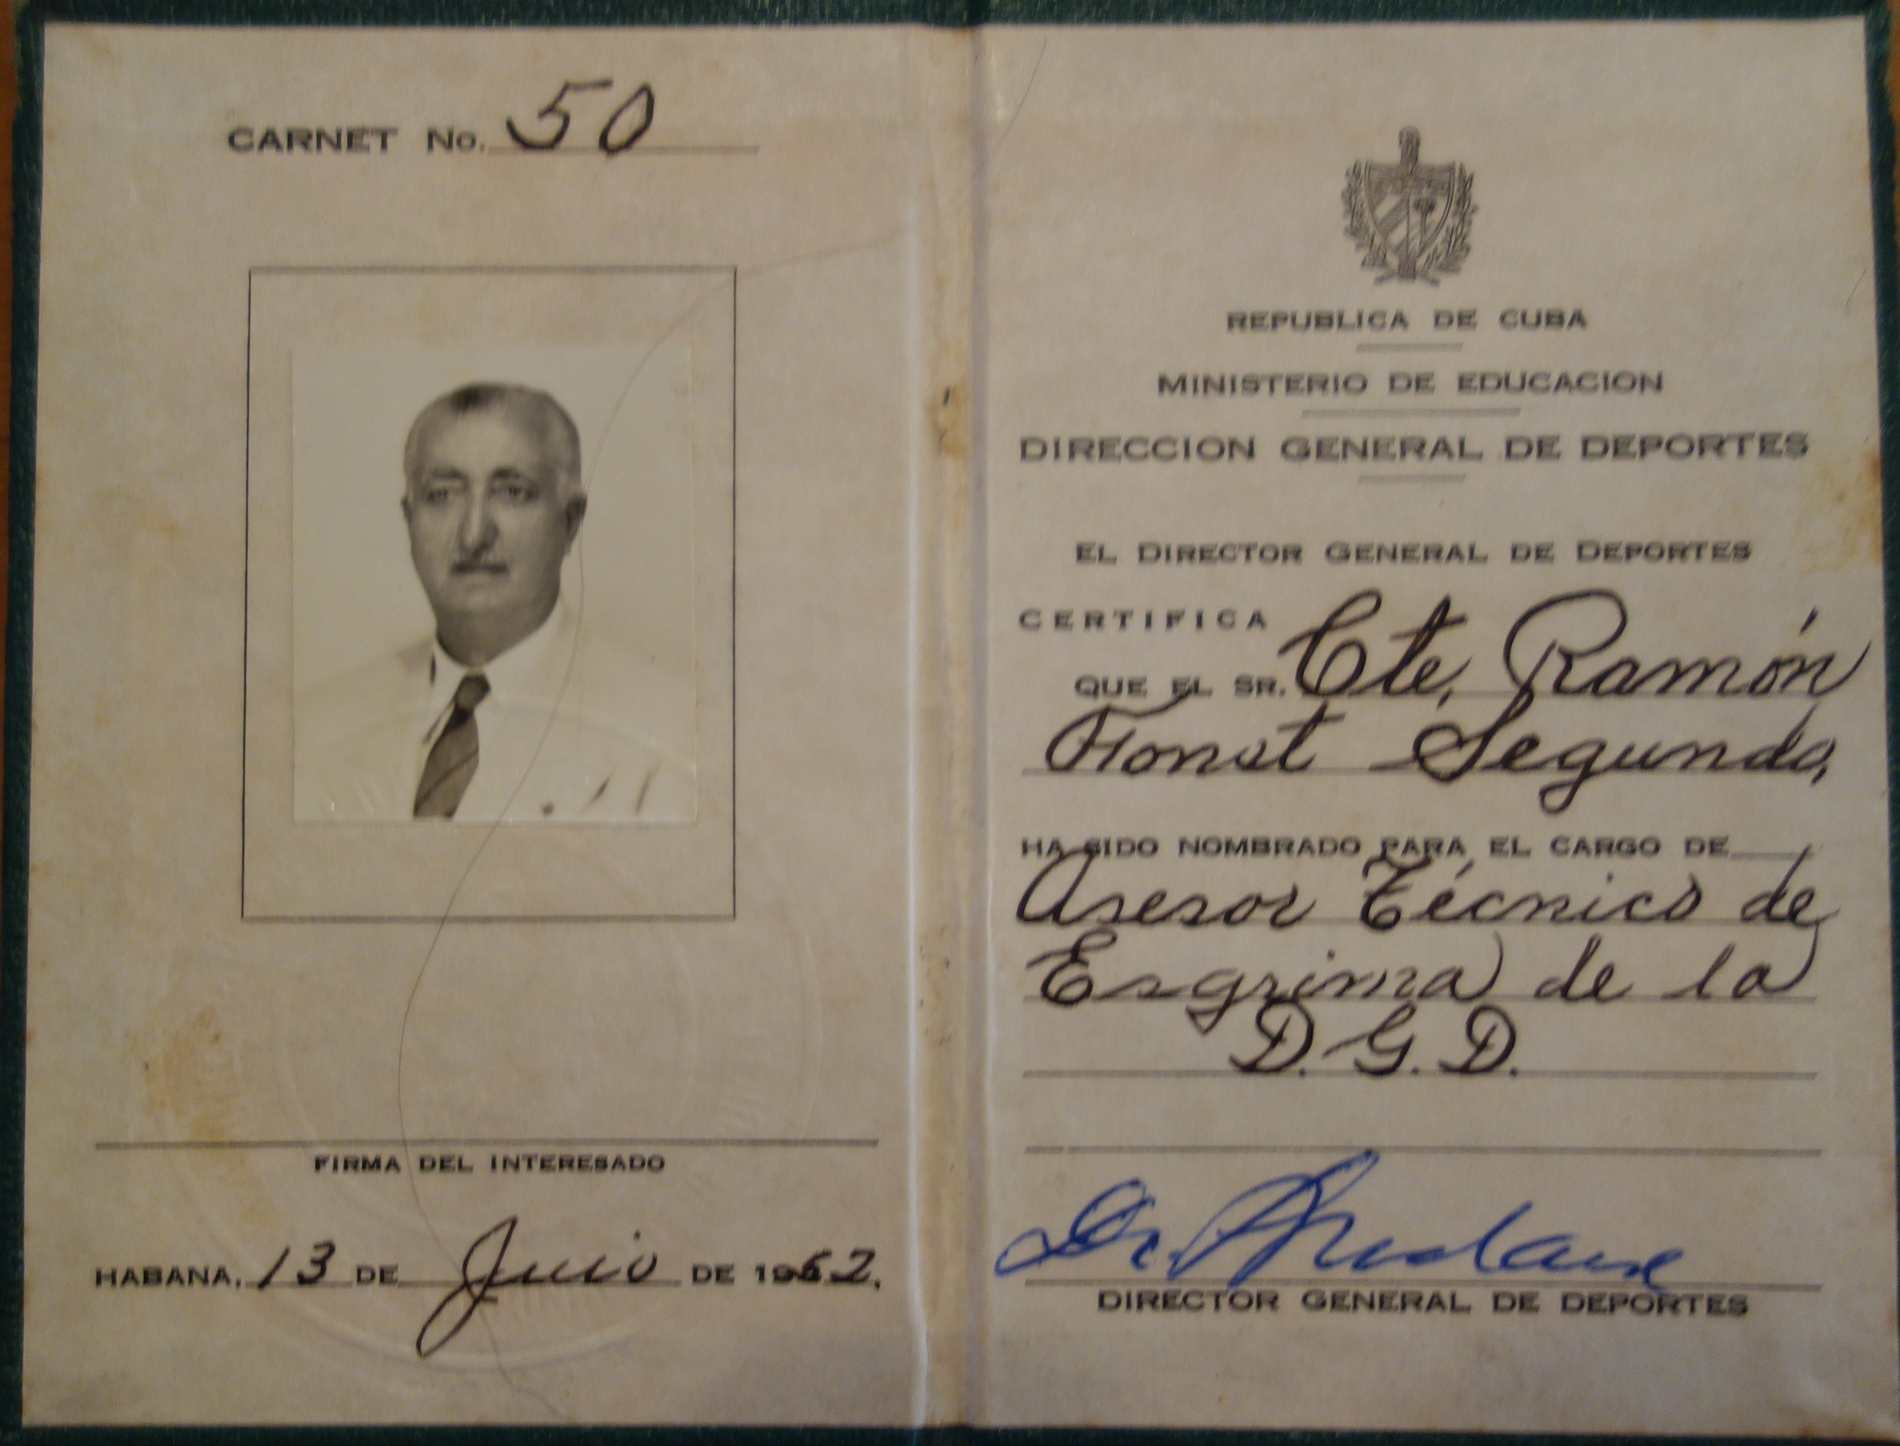 CARNET No. 50
FIRMA DEL INTERESADO
HABANA, 13 DE Junio DE 1962.
REPUBLICA DE CUBA
MINISTERIO DE EDUCACION
DIRECCION GENERAL DE DEPORTES
EL DIRECTOR GENERAL DE DEPORTES
CERTIFICA
QUE EL SR. Cte. Ramón
Fonst Segundo,
HA SIDO NOMBRADO PARA EL CARGO DE
Asesor Técnico de
Esgrima de la
D. G. D.
Dr.
DIRECTOR GENERAL DE DEPORTES